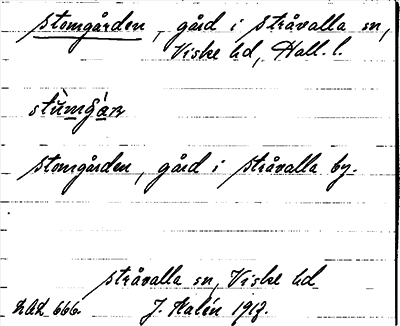 Stomgården, gård i Stråvalla sn,
Viske hd, Hall. l.
stùmg̀ar
Stomgården, gård i Stråvalla by.
Stråvalla sn, Viske hd
666. J. Kalén 1917.